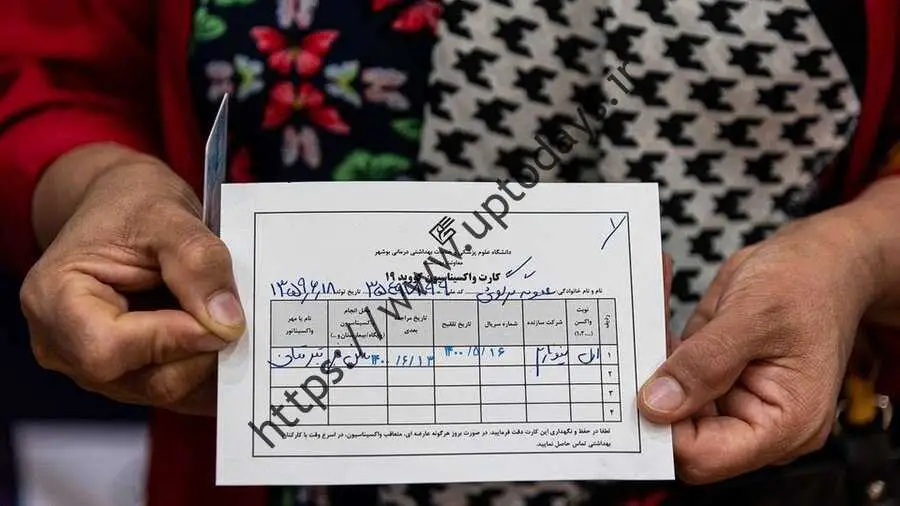 ۷
دانشگاه علوم پزشکی و خدمات بهداشتی درمانی بوشهر
کارت واکسیناسیون کووید ۱۹
نام و نام خانوادگی کد ملی تاریخ تولد ۱۳۵۹/۶/۱۸
ردیف نوبت واکسن (۱،۲،...) شرکت سازنده شماره سریال تاریخ تلقیح تاریخ مراجعه بعدی محل انجام واکسیناسیون نام یا مهر واکسیناتور
۱ اول سینوفارم ۱۴۰۰/۵/۱۶ ۱۴۰۰/۶/۱۳
۲
۳
۴
لطفا در حفظ و نگهداری این کارت دقت فرمایید. در صورت بروز هرگونه عارضه ای، متعاقب واکسیناسیون، در اسرع وقت با کارکنان
بهداشتی تماس حاصل نمایید.
https://www.uptodays.ir